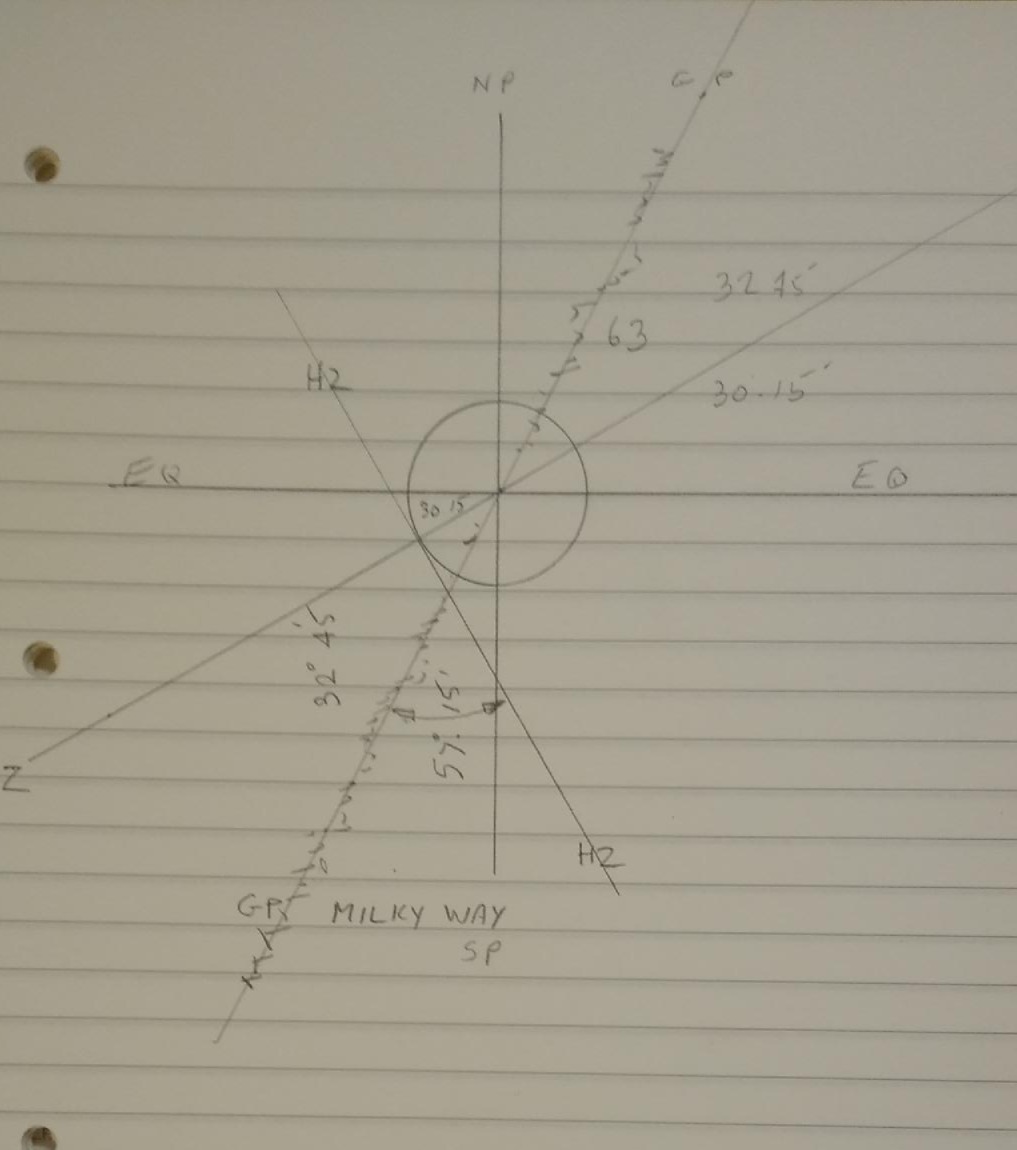 NP
G P
32 45′
63
HZ
30.15′
EQ
EQ
30 15′
32° 45′
57° 15′
Z
HZ
GP
MILKY WAY
SP